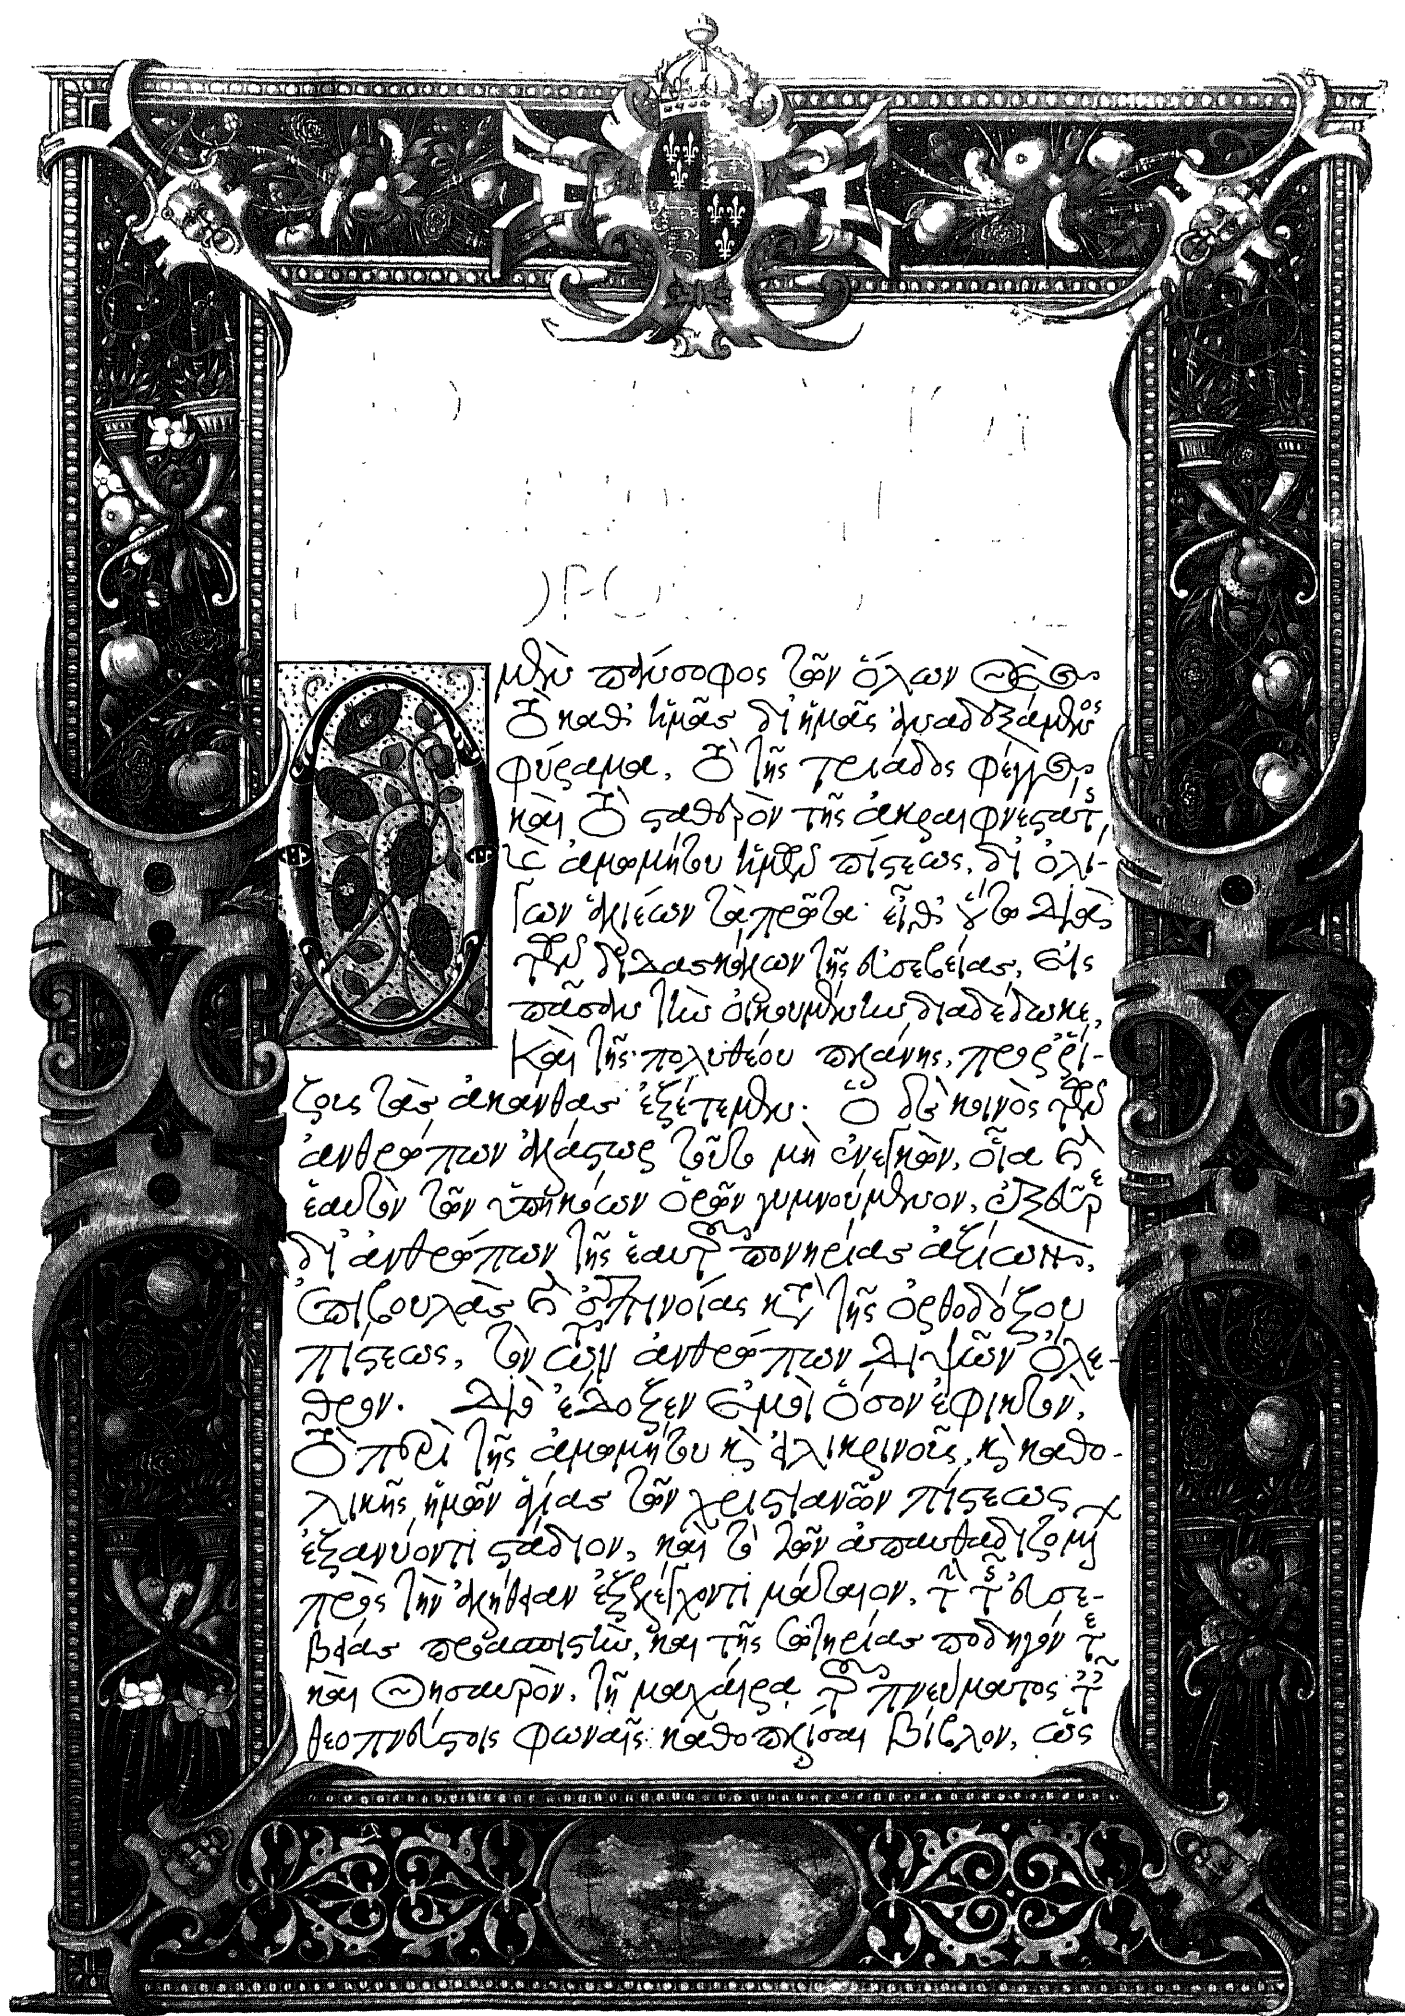 μὲν πάνσοφος τῶν ὅλων Θεὸς
ὁ καθ' ἡμᾶς δι' ἡμᾶς ἀναδεξάμενος
φύραμα, τὸ τῆς τριάδος φέγγος,
καὶ τὸ σταθηρὸν τῆς ἀκραιφνεστάτης
ἀμωμήτου ἡμῶν πίστεως, δι' ὀλί-
γων ἁλιέων τὰ πρῶτα· εἶθ' οὕτω διὰ
τῶν διδασκάλων τῆς εὐσεβείας, εἰς
πᾶσαν τὴν οἰκουμένην διαδέδωκε,
καὶ τῆς πολυθέου πλάνης, προρρί-
ζους τὰς ἀκάνθας ἐξέτεμεν. Ὁ δὲ κοινὸς τῶν
ἀνθρώπων ἀλάστωρ τοῦτο μὴ ἐνεγκὼν, οἷα δὴ
ἑαυτὸν τῶν ὑπηκόων ὁρῶν γυμνούμενον, ἐξεῦρε
δι' ἀνθρώπων τῆς ἑαυτοῦ πονηρίας ἀξίων,
ἐπιβουλὰς καὶ ἐπινοίας κατὰ τῆς ὀρθοδόξου
πίστεως, τὸν τῶν ἀνθρώπων διψῶν ὄλε-
θρον. Διὸ ἔδοξεν ἐμοὶ ὅσον ἐφικτὸν,
τὸ περὶ τῆς ἀμωμήτου καὶ εἰλικρινοῦς, καὶ καθο-
λικῆς ἡμῶν ἁγίας τῶν χριστιανῶν πίστεως
ἐξανύοντι στάδιον, καὶ τὸ τῶν ἀπαυθαδιζομένων
πρὸς τὴν ἀλήθειαν ἐξελέγχοντι μάταιον, τὸν τῆς εὐσε-
βείας προασπιστὴν, καὶ τῆς σωτηρίας ποδηγόν τε
καὶ Θησαυρὸν, τῇ μαχαίρᾳ τοῦ πνεύματος
θεοπνεύστοις φωναῖς καθοπλίσαι βίβλον, ὡς